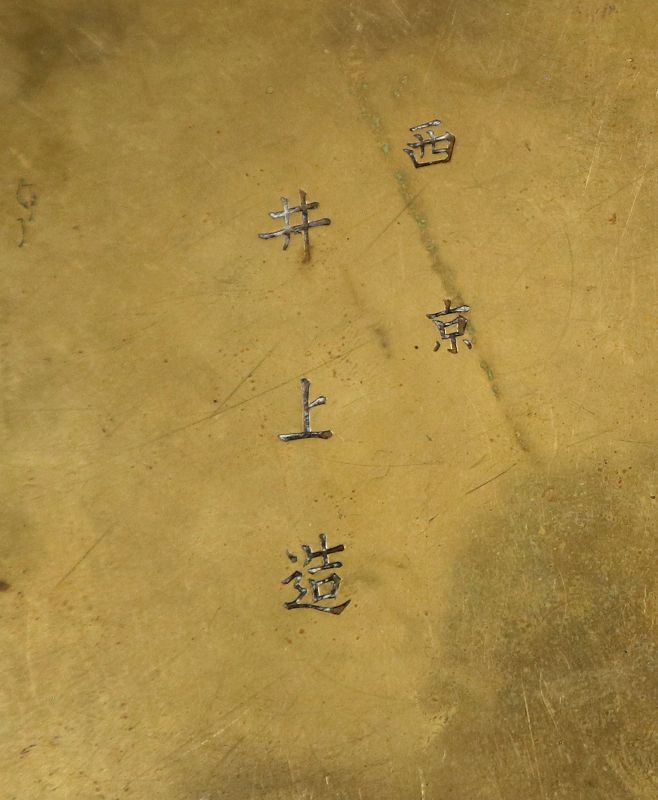 西京
井上造